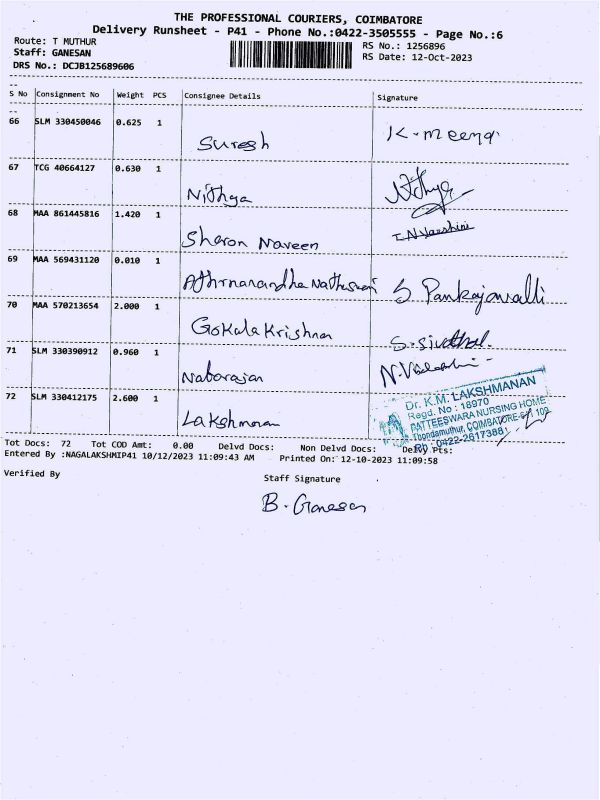 THE PROFESSIONAL COURIERS, COIMBATORE
Delivery Runsheet - P41 - Phone No.:0422-3505555 - Page No.:6
Route: T MUTHUR
RS No.: 1256896
Staff: GANESAN
RS Date: 12-Oct-2023
DRS No.: DCJB125689606
S No Consignment No Weight PCS Consignee Details Signature
66 SLM 330450046 0.625 1
Suresh K. meena
67 TCG 40664127 0.630 1
Nithya Nithya
68 MAA 861445816 1.420 1
Sharon Naveen
69 MAA 569431120 0.010 1
S. Pankajavalli
70 MAA 570213654 2.000 1
Gokula Krishnan
71 SLM 330390912 0.960 1
Natarajan
72 SLM 330412175 2.600 1
Lakshmanan
Dr. K.M. LAKSHMANAN
Regd. No : 18970
PATTEESWARA NURSING HOME
Thondamuthur, COIMBATORE-641 109
Ph : 0422-2617388
Tot Docs: 72 Tot COD Amt: 0.00 Delvd Docs: Non Delvd Docs: Pts:
Entered By :NAGALAKSHMIP41 10/12/2023 11:09:43 AM Printed On: 12-10-2023 11:09:58
Verified By
Staff Signature
B. Ganesan